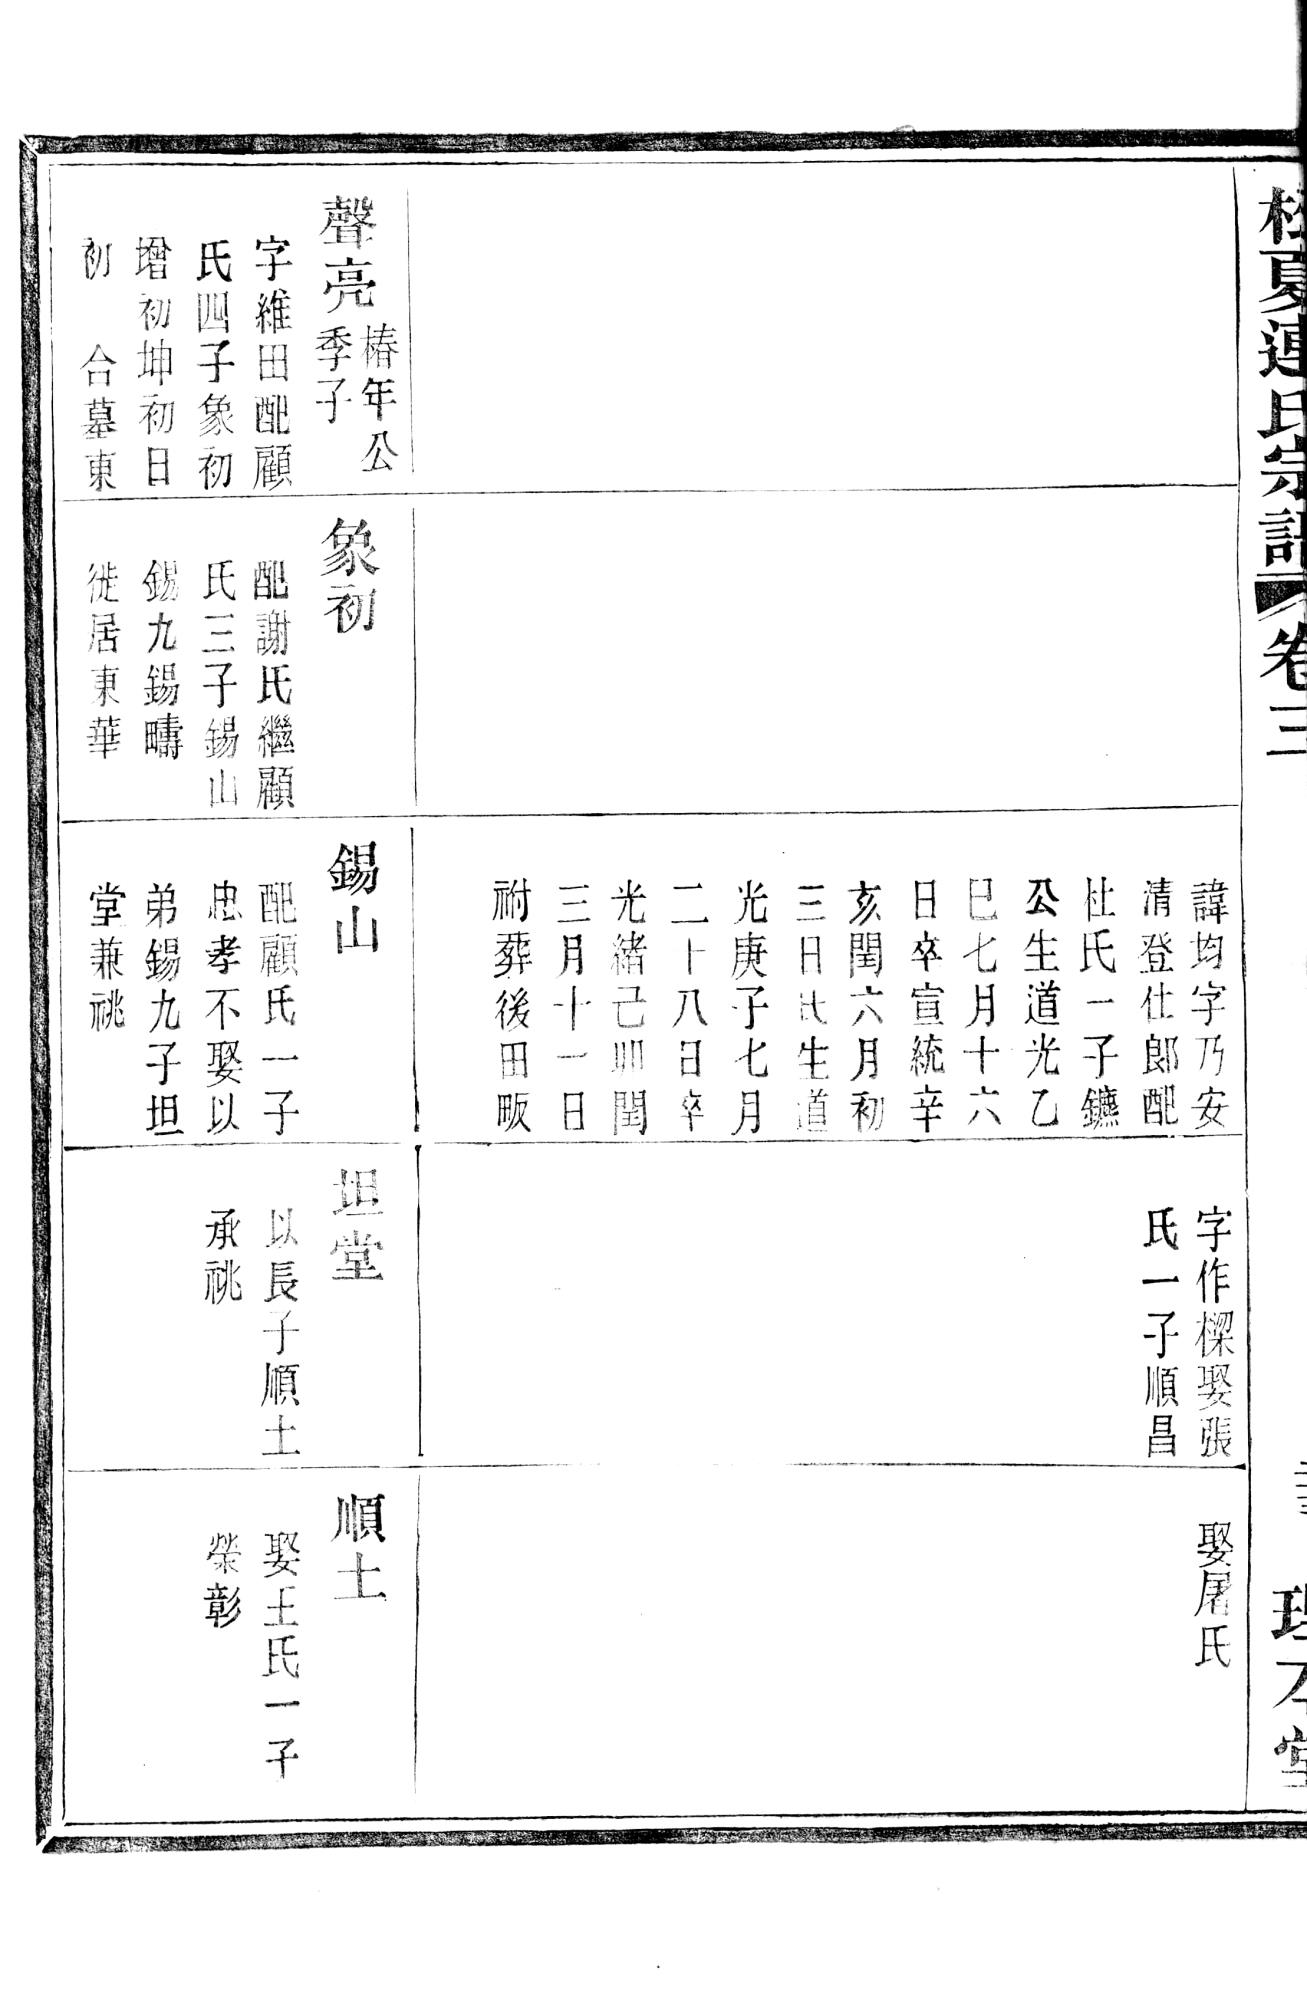 松夏連氏宗譜 卷三
理本堂
諱均字乃安
清登仕郎配
杜氏一子鑣
公生道光乙
巳七月十六
日卒宣統辛
亥閏六月初
三日氏生道
光庚子七月
二十八日卒
光緒己卯閏
三月十一日
祔葬後田畈
字作樑娶張
氏一子順昌
娶屠氏
聲亮
椿年公
季子
字維田配顧
氏四子象初
增初坤初日
初 合墓東
象初
配謝氏繼顧
氏三子錫山
錫九錫疇
徙居東華
錫山
配顧氏一子
忠孝不娶以
弟錫九子坦
堂兼祧
坦堂
以長子順土
承祧
順土
娶王氏一子
榮彰